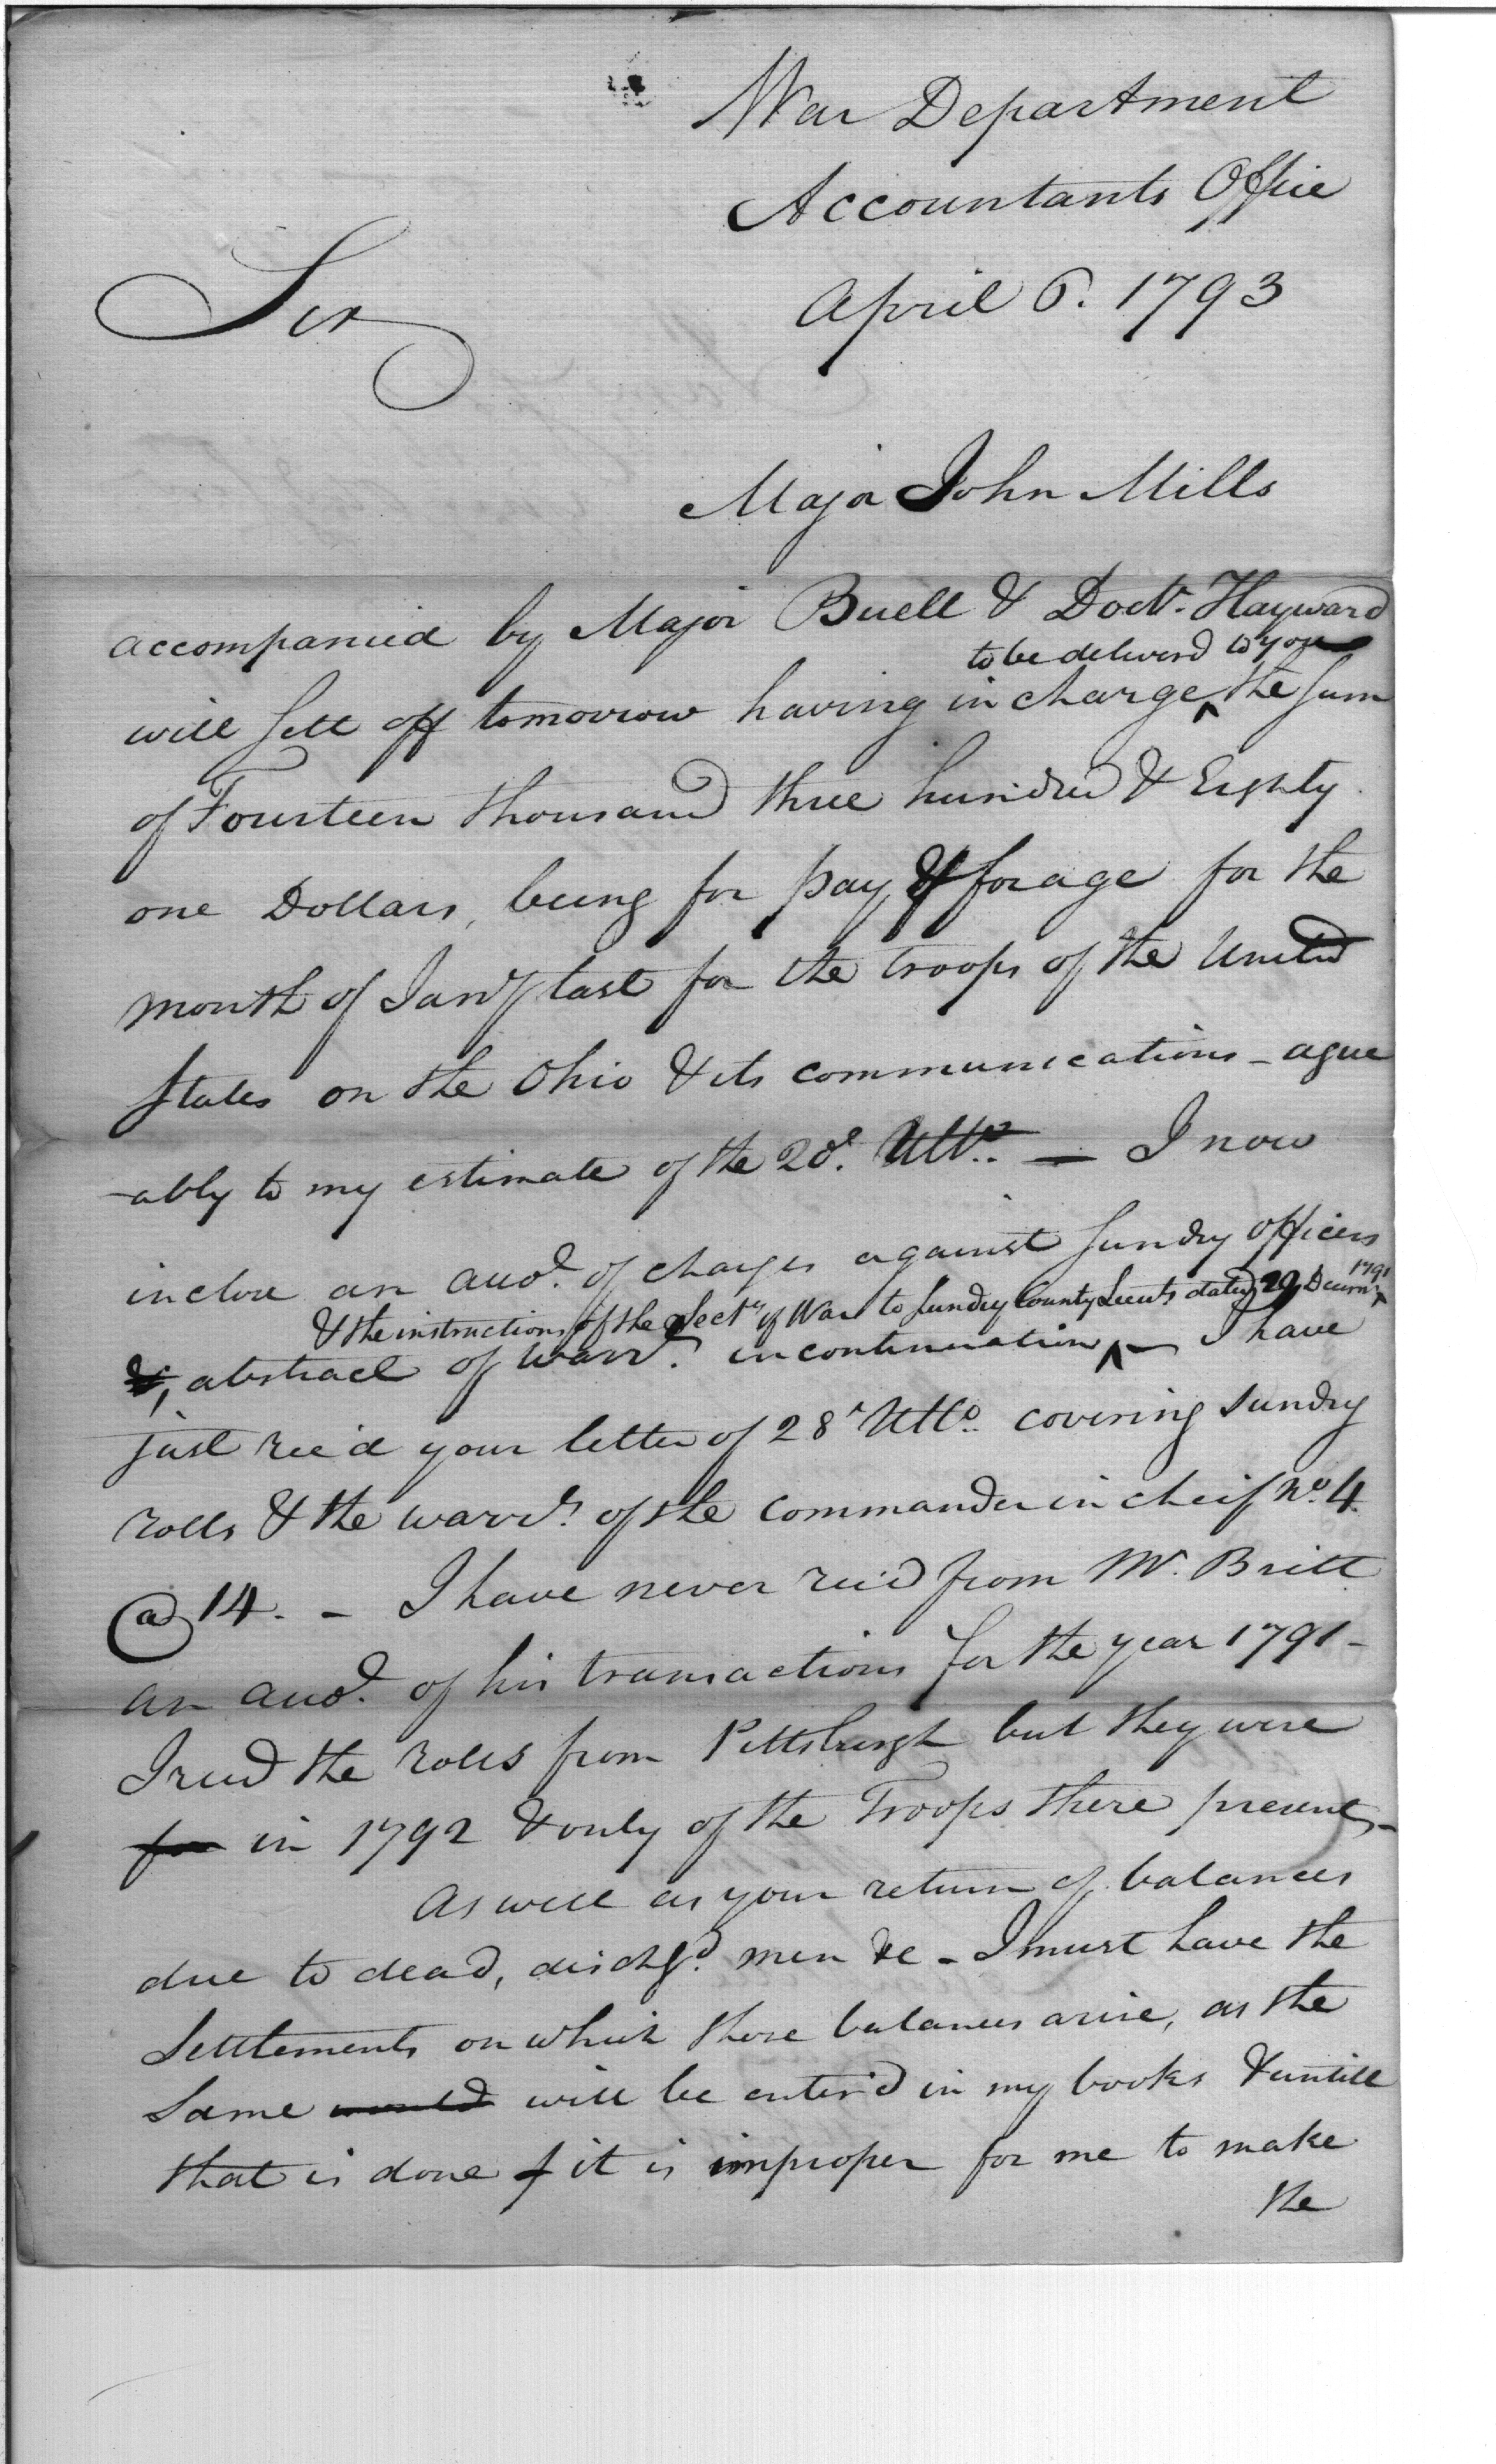 War Department
Accountants Office
April 6. 1793
Sir
Major John Mills
accompanied by Major Buell & Doctr. Hayward
to be deliverd to you
will sett off tomorrow having in charge ^ the sum
of Fourteen thousand three hundred & Eighty
one Dollars, being for pay & forage for the
month of Jany last for the troops of the United
States on the Ohio & its communications - agree
-ably to my estimate of the 2d. Ulto. — I now
inclose an accot. of charges against sundry officers
& the instructions of the Secty of War to sundry County Lieuts dated 29 Decemr 1791
&, abstract of warrts. in continuation ^ — I have
just rec'd your letter of 28 Ulto. covering sundry
rolls & the warrts. of the commander in cheif No. 4
@ 14. - I have never rec'd from Mr. Britt
an accot. of his transactions for the year 1791 -
I recd the rolls from Pittsburgh but they were
for in 1792 & only of the Troops there present -
As well as your return of balances
due to dead, dischgd. men &c - I must have the
Settlements on which those balances arise, as the
Same would will be enter'd in my books & untill
that is done it is improper for me to make
the